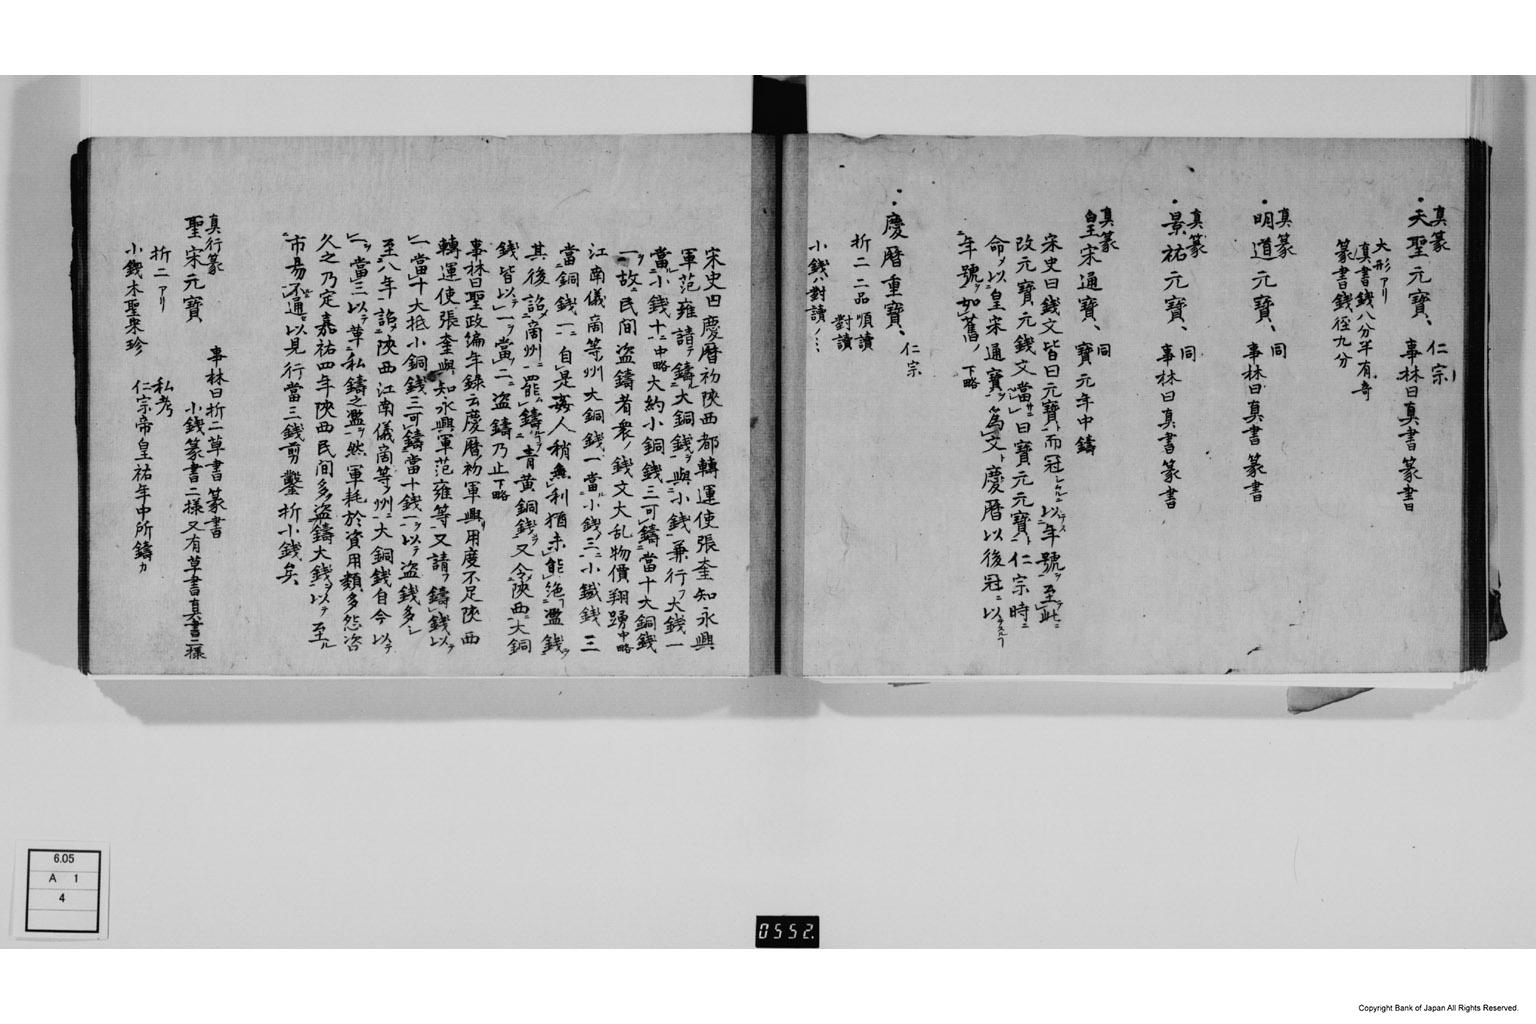 真篆
・天聖元寶、 仁宗
事林曰真書篆書
大形アリ
真書錢八分半有奇
篆書錢徑九分
真篆
・明道元寶、 同
事林曰真書篆書
真篆
・景祐元寶、 同
事林曰真書篆書
真篆
皇宋通寶、 同
寶元年中鑄
宋史曰錢文皆曰元寶而冠以年號至此
改元寶元錢文當曰寶元元寶仁宗時
命以皇宋通寶為文慶暦以後冠以
年號如舊 下略
・慶暦重寶、 仁宗
折二二品順讀
對讀
小錢ハ對讀ノミ
宋史四慶暦初陝西都轉運使張奎知永興
軍范雍請鑄大銅錢與小錢兼行大錢一
當小錢十中略大約小銅錢三可鑄當十大銅錢
一故民间盗鑄者衆錢文大乱物價翔踴中略
江南儀商等州大銅錢一當小錢三小鐵錢三
當銅錢一自是姦人稍無利猶未能絶濫錢
其後詔商州罷鑄青黄銅錢又令陝西大銅
錢皆以一當二盗鑄乃止下略
事林曰聖政編年錄云慶暦初軍興用度不足陝西
轉運使張奎與知永興軍范雍等又請鑄錢以
一當十大抵小銅錢三可鑄當十錢一以盗錢多
至八年詔陝西江南儀商等州大銅錢自今以
一當三以革私鑄之濫然軍耗於資用類多怨咨
久之乃定嘉祐四年陝西民间多盗鑄大錢以至
市易不通以見行當三錢剪鑿折小錢矣
真行篆
聖宋元寶
事林曰折二草書篆書
小錢篆書二樣又有草書真書二樣
折二アリ
小錢本聖衆珍
私考
仁宗帝皇祐年中所鑄カ
6.05
A 1
4
0552.
Copyright Bank of Japan All Rights Reserved.